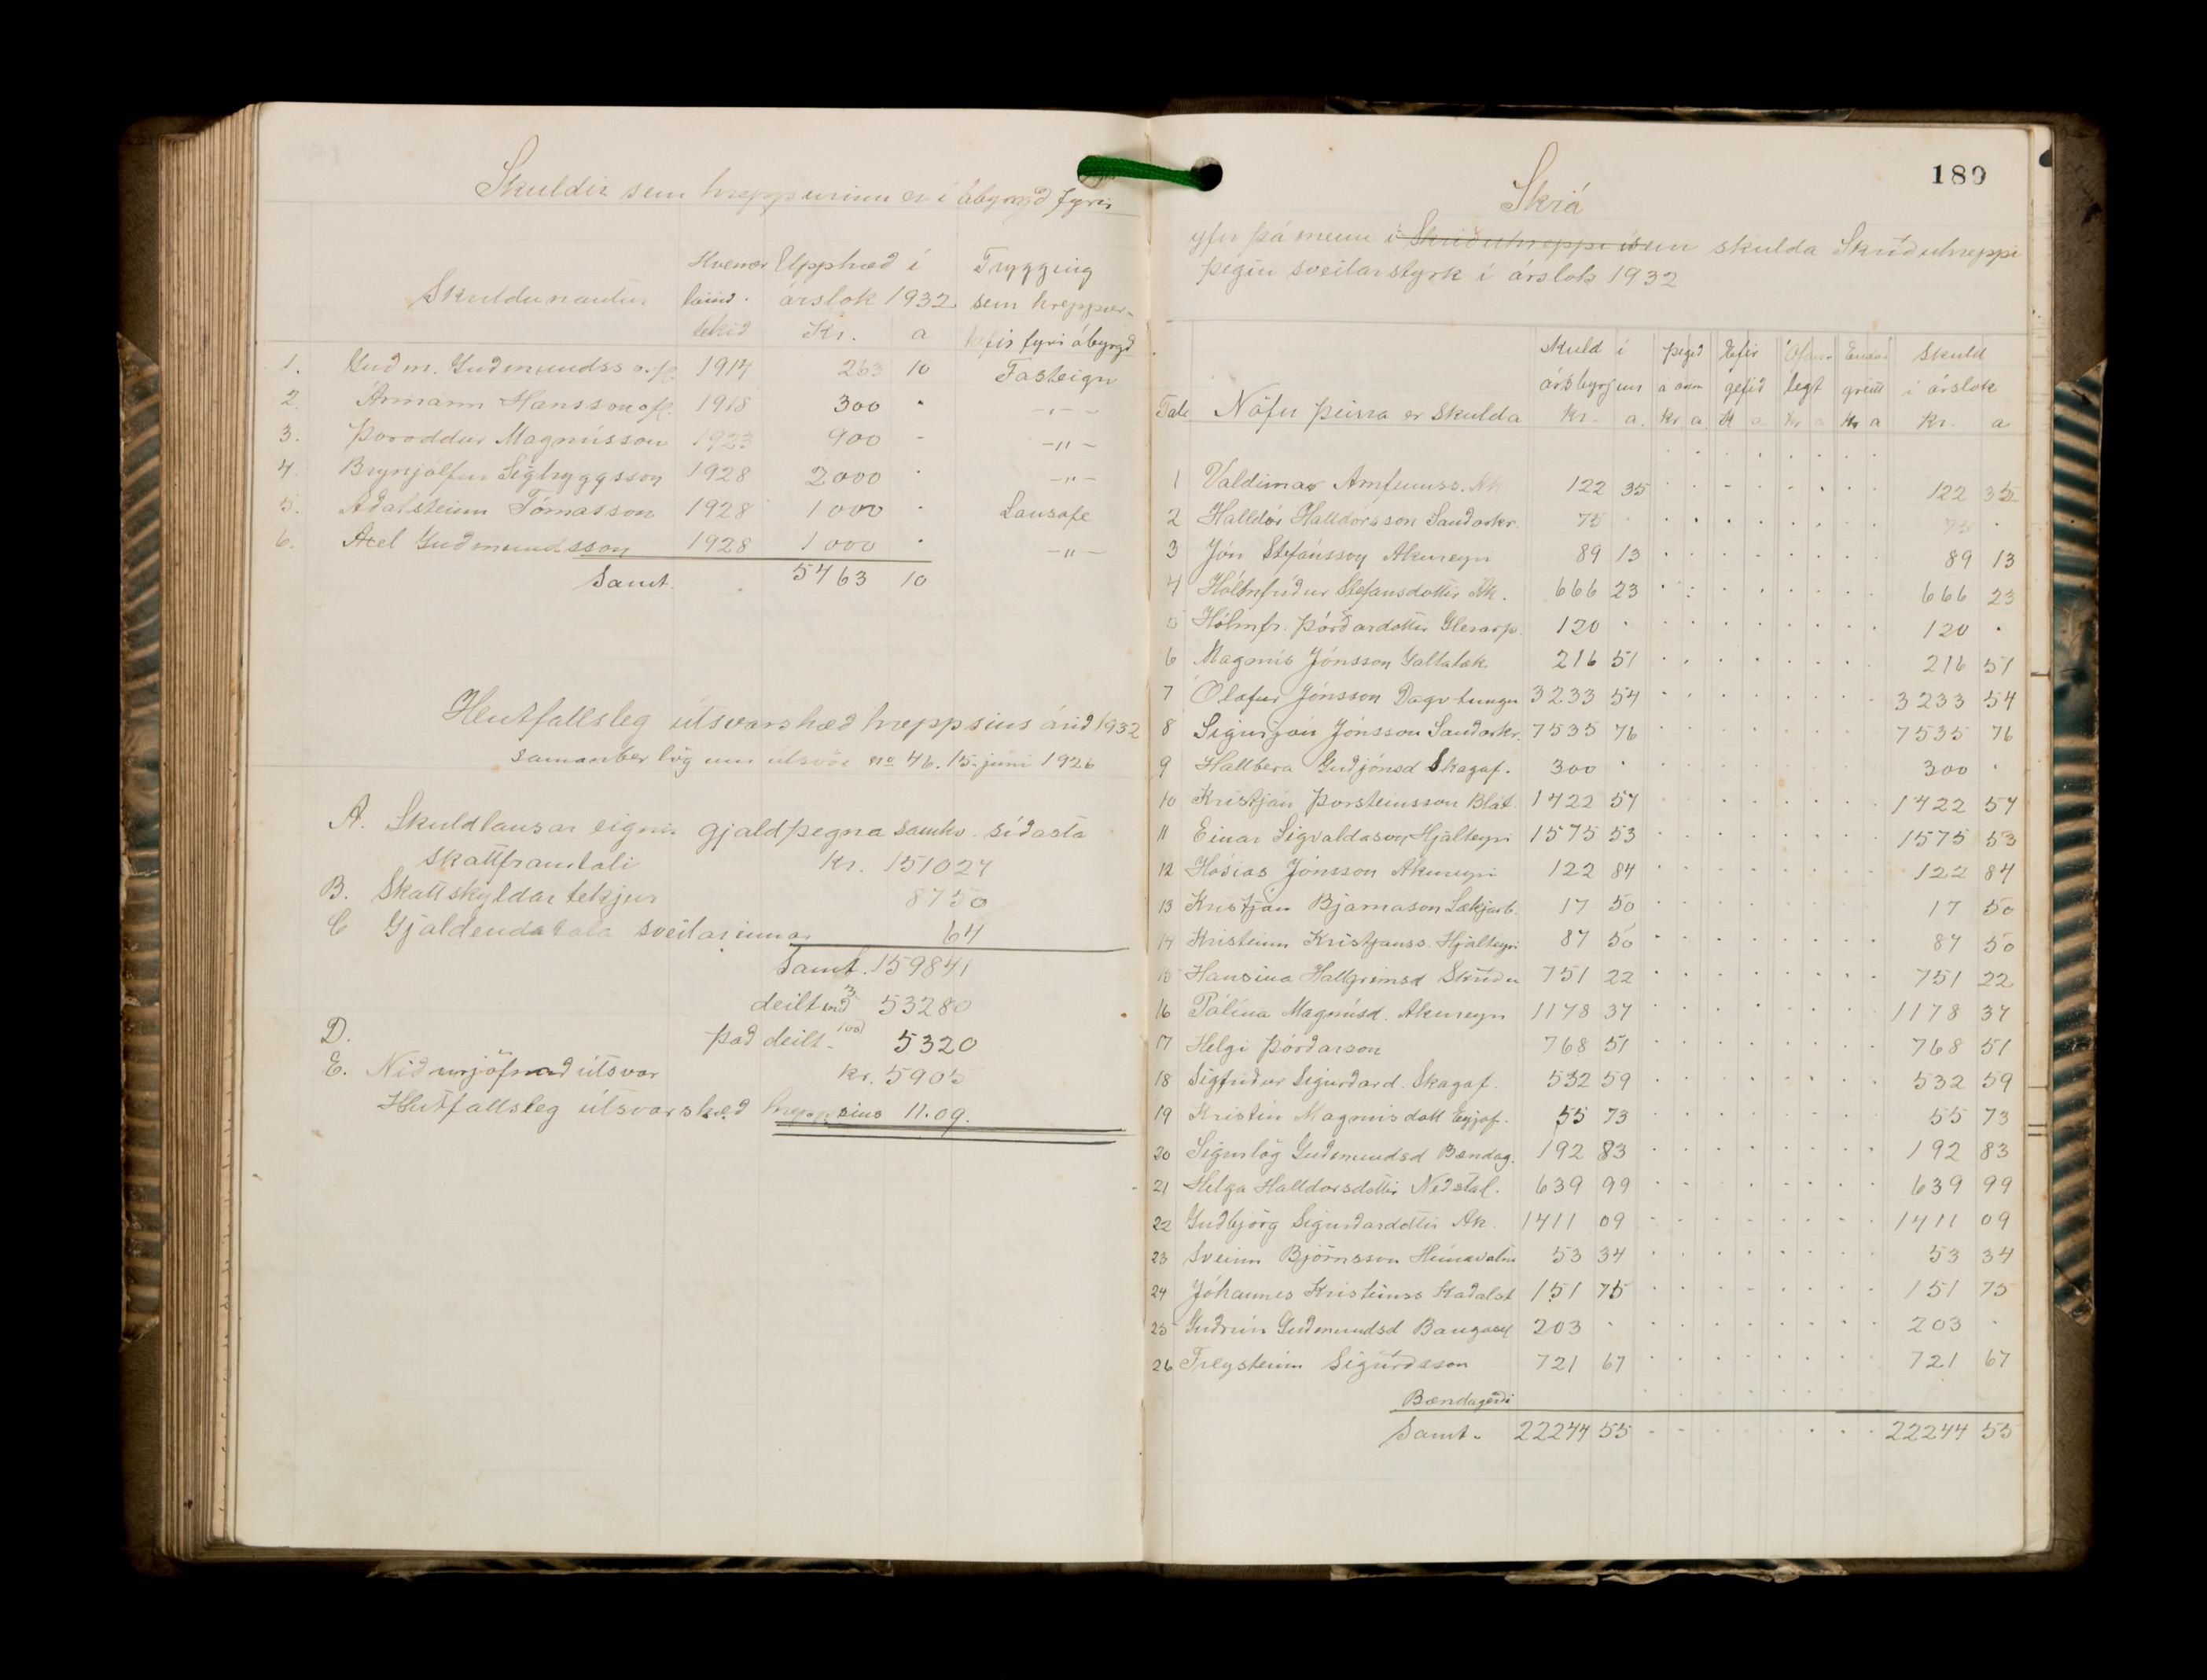 Skuldir sem hreppurinn er í ábyrgð fyrir
Skuldunautur Hvenær lánið tekið Upphæð í árslok 1932 Kr. a Trygging sem hreppur- hefir fyri ábyrgð
1. Guðm. Guðmundss o.fl. 1917 263 10 Fasteign
2. Ármann Hansson ofl. 1918 300 - -„-
3. Þoroddur Magnússon 1923 900 - -„-
4. Brynjólfur Sigtryggsson 1928 2000 - -„-
5. Aðalsteinn Tómasson 1928 1000 - Lausafe
6. Axel Guðmundsson 1928 1000 - -„-
Samt. 5463 10
Hlutfallsleg útsvarshæð hreppsins árið 1932
samanber lög um útsvör no 46. 15. júní 1926
A. Skuldlausar eignir gjaldþegna samkv. síðasta
skattframtali kr. 151027
B. Skattskyldar tekjur 8750
C Gjaldendatala sveitarinnar 64
Samt. 159841
deilt með 3 53280
D. það deilt. 100 5320
E. Niðurjöfnað útsvar kr. 5905
Hlutfallsleg útsvarshæð hreppsins 11.09.
189
Skrá
yfir þá menn í Skriðuhreppi sem skulda Skriðuhreppi
þegin sveitarstyrk í árslok 1932
Tala Nöfn þeirra er skulda Skuld í ársbyrjun kr. a. Þegið á árin kr. a. Eftir gefið kr a Kr a Endur greitt kr a Skuld í árslok Kr. a
1 Valdimar Arnfinnss. Ak 122 35 122 35
2 Halldór Halldórsson Sauðarkr. 75 - 75 -
3 Jón Stefánsson Akureyri 89 13 89 13
4 Hólmfríður Stefansdottir Ak. 666 23 666 23
5 Hólmfr. Þórðardottir Glerarþ. 120 - 120 -
6 Magnús Jónsson Galtalæk 216 51 216 51
7 Ólafur Jónsson Dagv.tungu 3233 54 3233 54
8 Sigurjón Jónsson Sauðarkr. 7535 76 7535 76
9 Hallbera Guðjónsd Skagaf. 300 - 300 -
10 Kristján Þorsteinsson Blát. 1422 57 1422 57
11 Einar Sigvaldason Hjalteyri 1575 53 1575 53
12 Hósias Jónsson Akureyri 122 84 122 84
13 Kristján Bjarnason Lækjarb. 17 50 17 50
14 Kristinn Kristjanss. Hjalteyri 87 50 87 50
15 Hansina Hallgrimsd Skriðu 751 22 751 22
16 Pálína Magnúsd. Akureyri 1178 37 1178 37
17 Helgi Þórðarson 768 51 768 51
18 Sigfriður Sigurðard. Skagaf. 532 59 532 59
19 Kristín Magnúsdott Eyjaf. 55 73 55 73
20 Sigurlög Guðmundsd Bændag. 192 83 192 83
21 Helga Halldorsdottir Neðstal. 639 99 639 99
22 Guðbjörg Sigurðardottir Ak. 1411 09 1411 09
23 Sveinn Björnsson Húnavatns 53 34 53 34
24 Jóhannes Kristinss Kaðalst 151 75 151 75
25 Guðrún Guðmundsd Baugasel 203 - 203 -
26 Freysteinn Sigurðsson 721 67 721 67
Bændagerði
Samt. 22244 55 22244 55